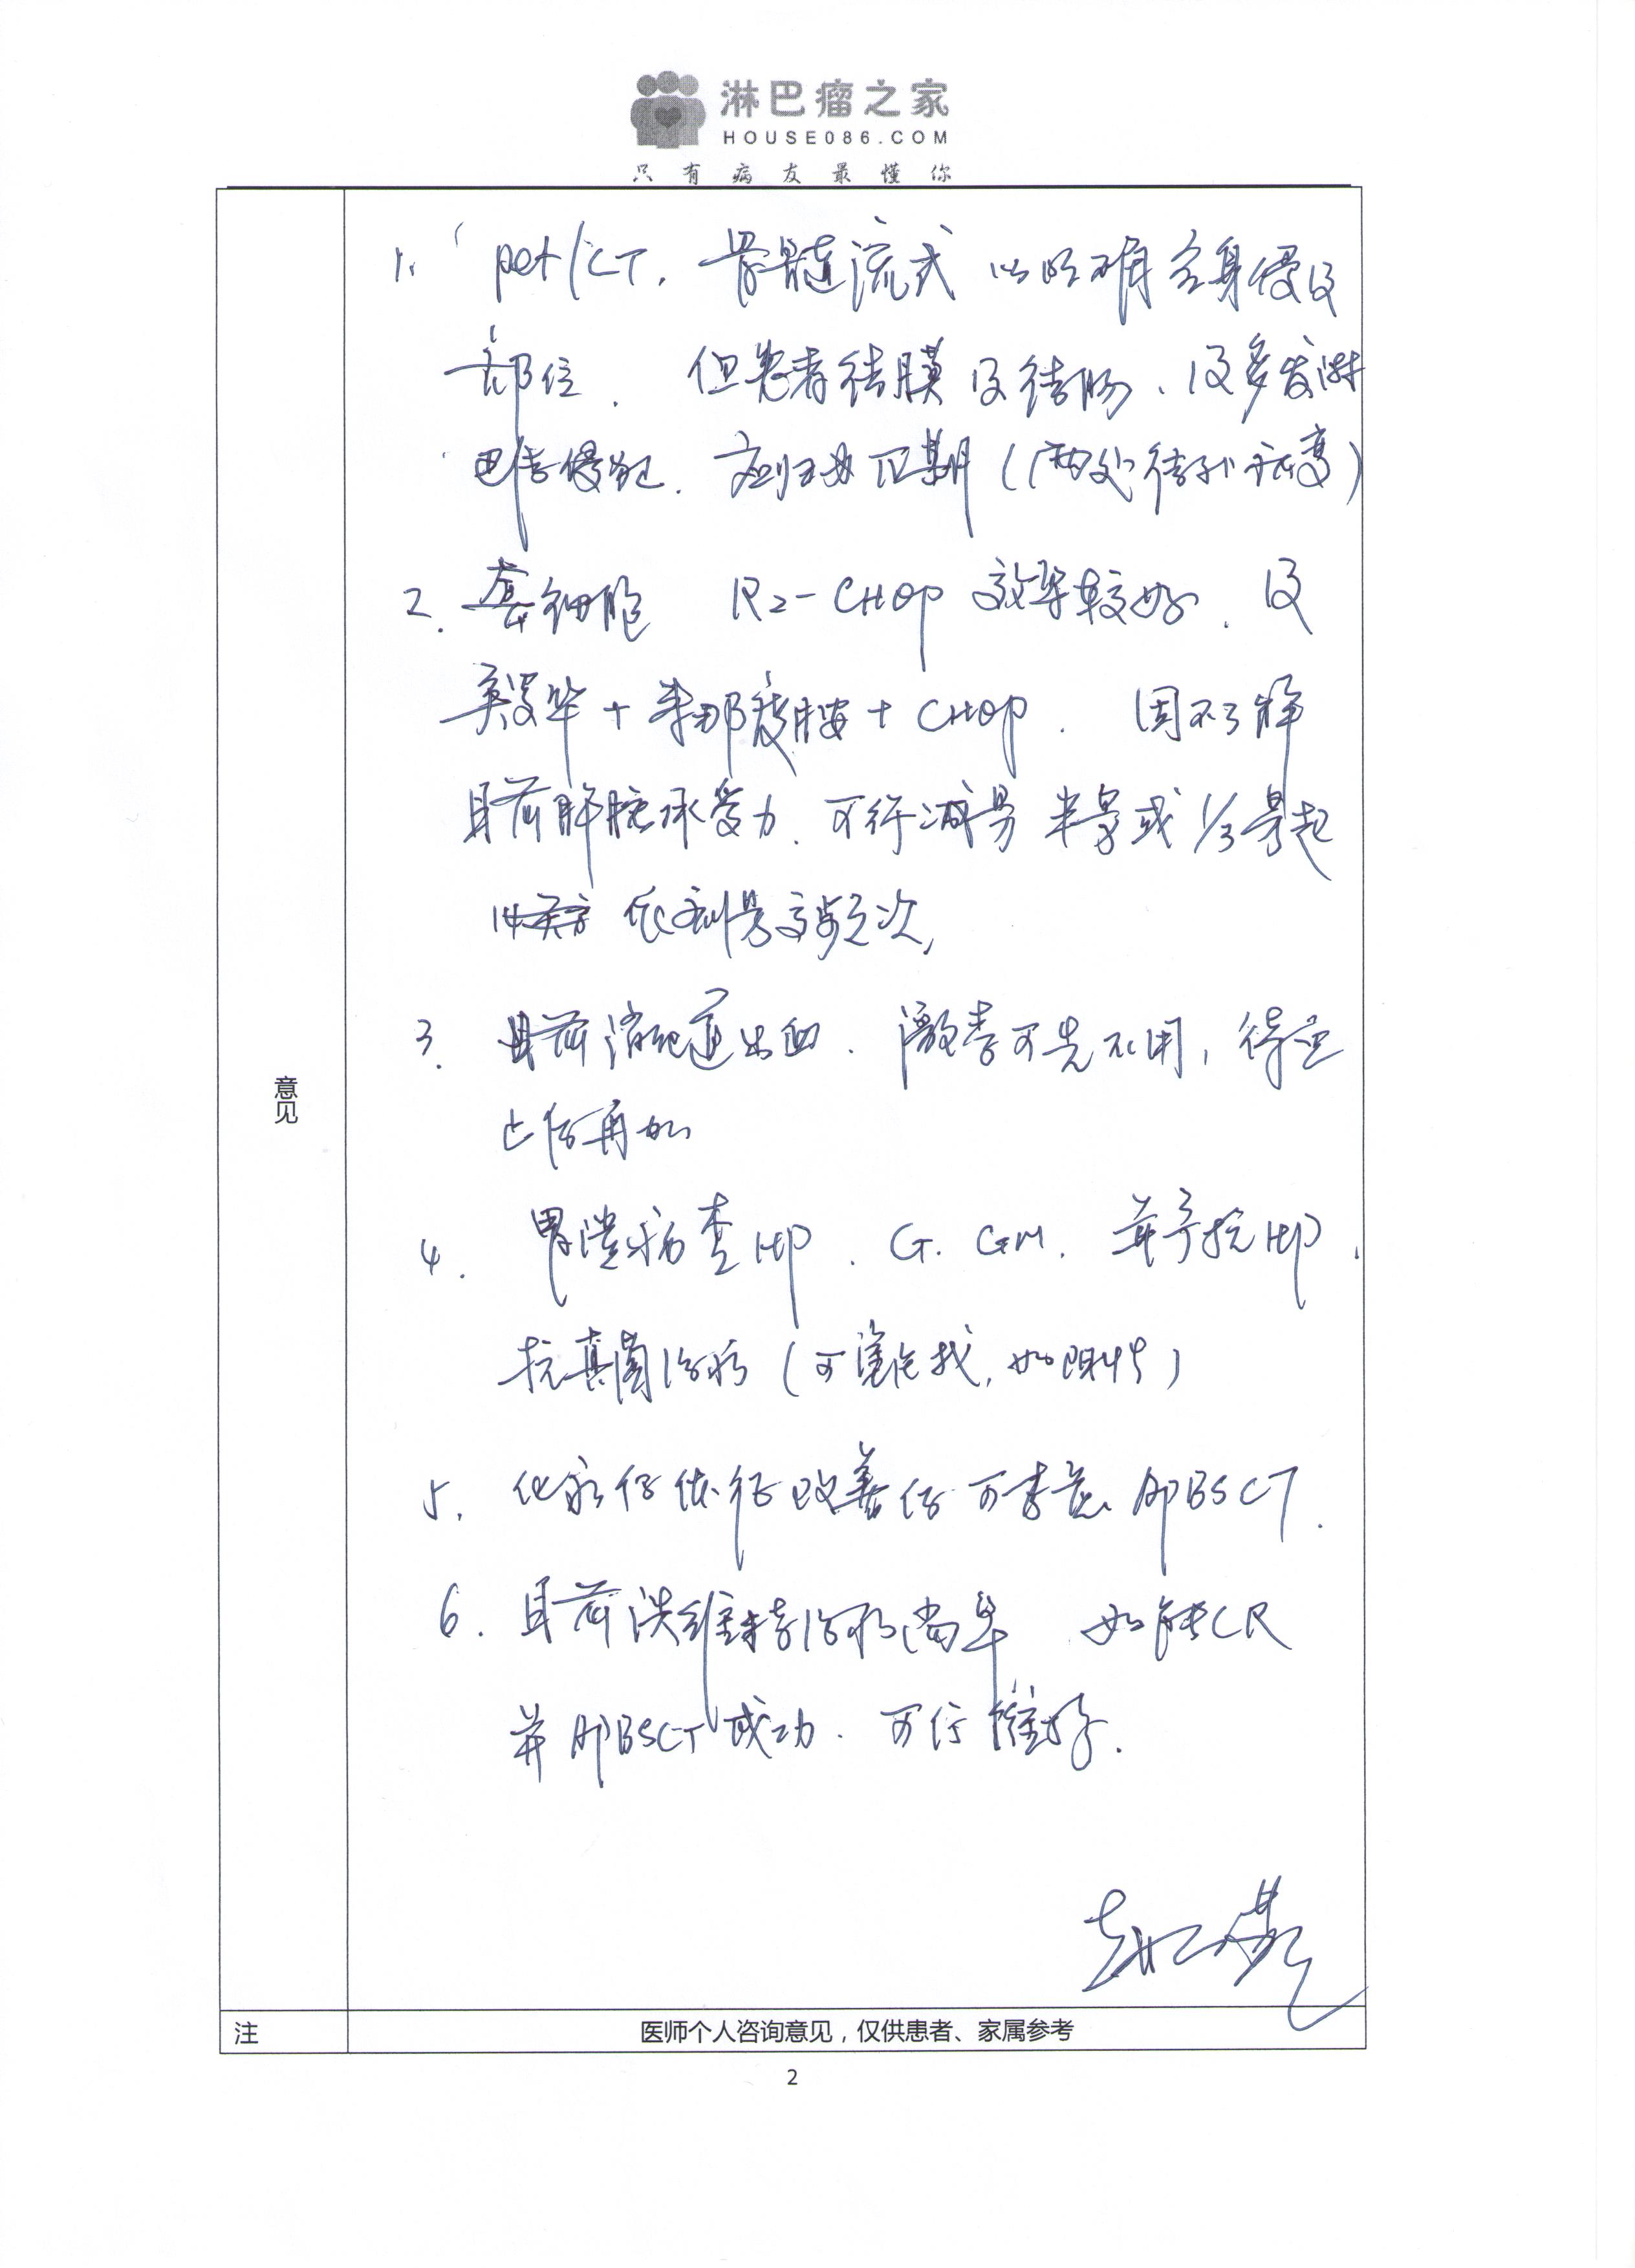 淋巴瘤之家
HOUSE086.COM
只有病友最懂你
意见
1. pet/CT. 骨髓流式 以明确全身侵及
部位. 但患者结膜及结肠、及多发淋
巴结侵犯. 应归为IV期 (两处结外病变)
2. 套细胞 R2-CHOP 效果较好. 及
美罗华 + 来那度胺 + CHOP. 因不了解
目前肝脏承受力. 可行减量 半量或 1/3量起
低剂量高频次.
3. 目前消化道出血. 激素可先不用, 待血
止后再加
4. 胃溃疡查HP. G. GM. 并予抗HP.
抗真菌治疗 (可 如阳性)
5. 化疗后体征改善后可考虑 APBSCT.
6. 目前谈维持治疗尚早 如能CR
并APBSCT成功. 可行维持.
注
医师个人咨询意见，仅供患者、家属参考
2